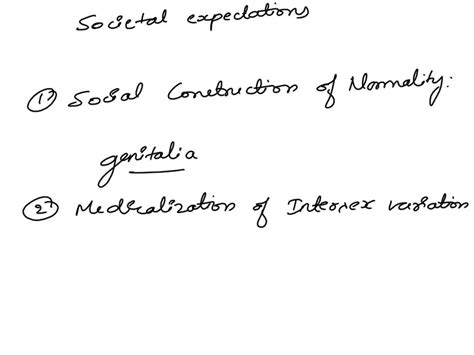 Societal expectations
① Social Construction of Normality:
genitalia
② Medicalization of Intersex variation